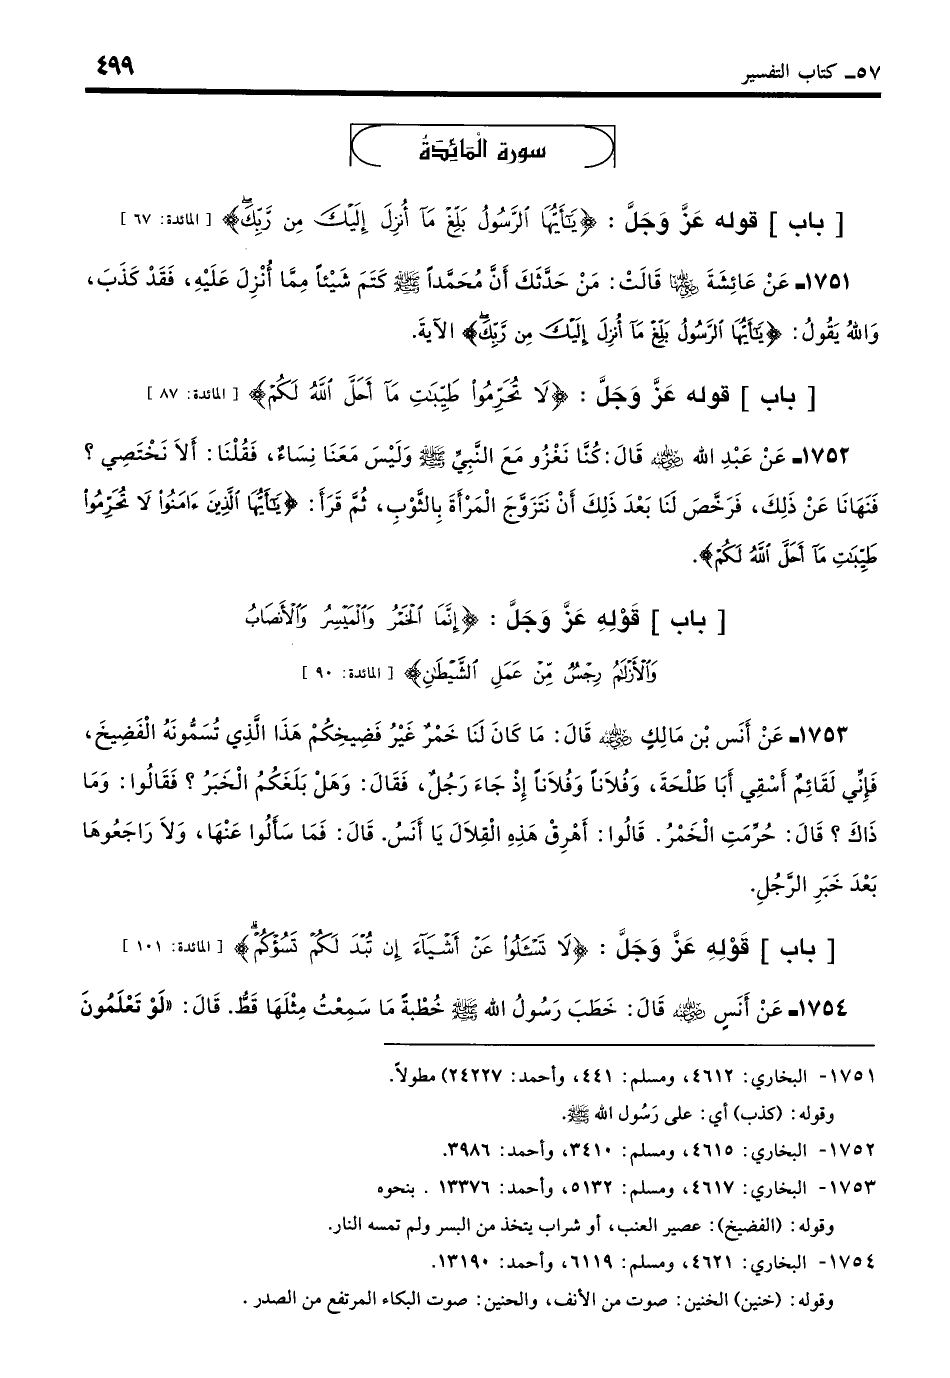 ٥٧ـ كتاب التفسير
٤٩٩
سورة المَائِدَةُ
[ باب ] قوله عَزَّ وَجَلَّ : ﴿يَٰٓأَيُّهَا ٱلرَّسُولُ بَلِّغۡ مَآ أُنزِلَ إِلَيۡكَ مِن رَّبِّكَۖ﴾ [ المائدة: ٦٧ ]
١٧٥١ـ عَنْ عَائِشَةَ رضي الله عنها قَالَتْ: مَنْ حَدَّثَكَ أَنَّ مُحَمَّداً ﷺ كَتَمَ شَيْئاً مِمَّا أُنْزِلَ عَلَيْهِ، فَقَدْ كَذَبَ،
وَاللهُ يَقُولُ: ﴿يَٰٓأَيُّهَا ٱلرَّسُولُ بَلِّغۡ مَآ أُنزِلَ إِلَيۡكَ مِن رَّبِّكَۖ﴾ الآيةَ.
[ باب ] قوله عَزَّ وَجَلَّ : ﴿لَا تُحَرِّمُواْ طَيِّبَٰتِ مَآ أَحَلَّ ٱللَّهُ لَكُمۡ﴾ [ المائدة: ٨٧ ]
١٧٥٢ـ عَنْ عَبْدِ الله رضي الله عنه قَالَ: كُنَّا نَغْزُو مَعَ النَّبِيِّ ﷺ وَلَيْسَ مَعَنَا نِسَاءٌ، فَقُلْنَا: أَلاَ نَخْتَصِي ؟
فَنَهَانَا عَنْ ذَلِكَ، فَرَخَّصَ لَنَا بَعْدَ ذَلِكَ أَنْ نَتَزَوَّجَ الْمَرْأَةَ بِالثَّوْبِ، ثُمَّ قَرَأَ: ﴿يَٰٓأَيُّهَا ٱلَّذِينَ ءَامَنُواْ لَا تُحَرِّمُواْ
طَيِّبَٰتِ مَآ أَحَلَّ ٱللَّهُ لَكُمۡ﴾.
[ باب ] قَوْلِهِ عَزَّ وَجَلَّ : ﴿إِنَّمَا ٱلۡخَمۡرُ وَٱلۡمَيۡسِرُ وَٱلۡأَنصَابُ
وَٱلۡأَزۡلَٰمُ رِجۡسٌ مِّنۡ عَمَلِ ٱلشَّيۡطَٰنِ﴾ [ المائدة: ٩٠ ]
١٧٥٣ـ عَنْ أَنَسِ بْنِ مَالِكٍ رضي الله عنه قَالَ: مَا كَانَ لَنَا خَمْرٌ غَيْرُ فَضِيخِكُمْ هَذَا الَّذِي تُسَمُّونَهُ الْفَضِيخَ،
فَإِنِّي لَقَائِمٌ أَسْقِي أَبَا طَلْحَةَ، وَفُلاَناً وَفُلاَناً إِذْ جَاءَ رَجُلٌ، فَقَالَ: وَهَلْ بَلَغَكُمُ الْخَبَرُ ؟ فَقَالُوا: وَمَا
ذَاكَ ؟ قَالَ: حُرِّمَتِ الْخَمْرُ. قَالُوا: أَهْرِقْ هَذِهِ الْقِلاَلَ يَا أَنَسُ. قَالَ: فَمَا سَأَلُوا عَنْهَا، وَلاَ رَاجَعُوهَا
بَعْدَ خَبَرِ الرَّجُلِ.
[ باب ] قَوْلِهِ عَزَّ وَجَلَّ : ﴿لَا تَسۡـَٔلُواْ عَنۡ أَشۡيَآءَ إِن تُبۡدَ لَكُمۡ تَسُؤۡكُمۡ﴾ [ المائدة: ١٠١ ]
١٧٥٤ـ عَنْ أَنَسٍ رضي الله عنه قَالَ: خَطَبَ رَسُولُ الله ﷺ خُطْبَةً مَا سَمِعْتُ مِثْلَهَا قَطُّ. قَالَ: «لَوْ تَعْلَمُونَ
١٧٥١- البخاري: ٤٦١٢، ومسلم: ٤٤١، وأحمد: ٢٤٢٢٧) مطولاً.
وقوله: (كذب) أي: على رَسُول الله ﷺ.
١٧٥٢- البخاري: ٤٦١٥، ومسلم: ٣٤١٠، وأحمد: ٣٩٨٦.
١٧٥٣- البخاري: ٤٦١٧، ومسلم: ٥١٣٢، وأحمد: ١٣٣٧٦ . بنحوه
وقوله: (الفضيخ): عصير العنب، أو شراب يتخذ من البسر ولم تمسه النار.
١٧٥٤- البخاري: ٤٦٢١، ومسلم: ٦١١٩، وأحمد: ١٣١٩٠.
وقوله: (خنين) الخنين: صوت من الأنف، والحنين: صوت البكاء المرتفع من الصدر .